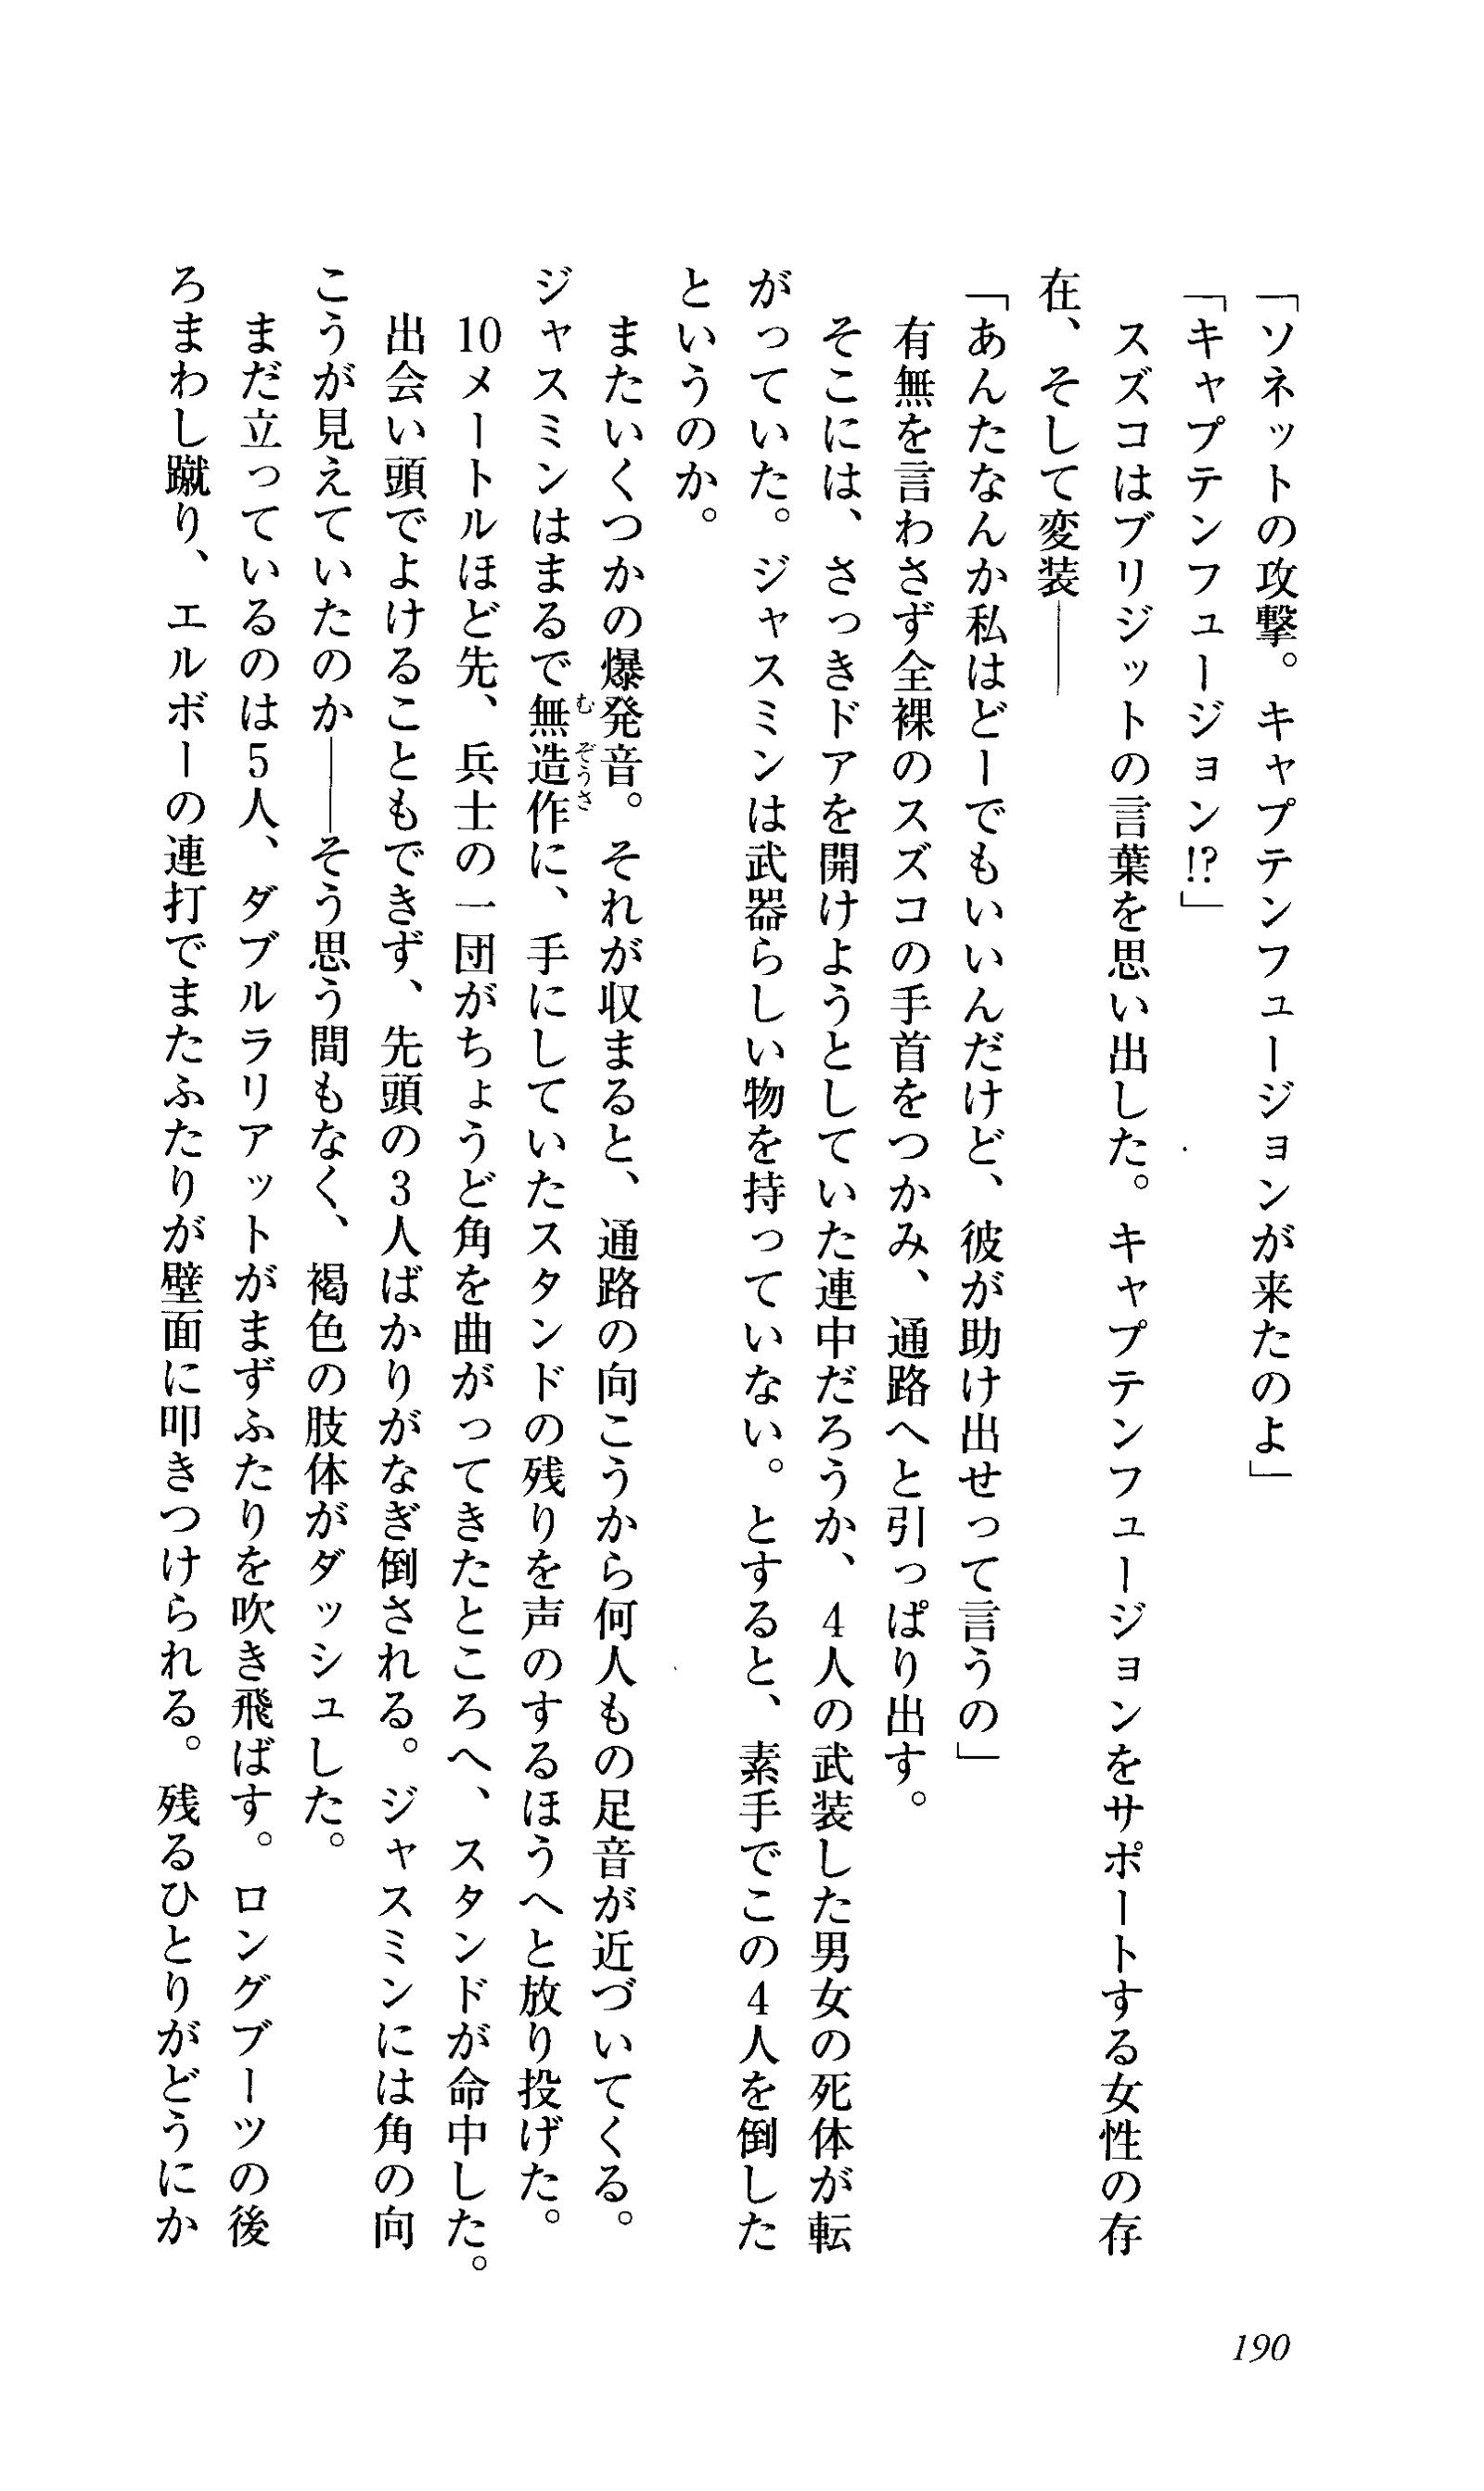 「ソネットの攻撃。キャプテンフュージョンが来たのよ」
「キャプテンフュージョン!?」
　スズコはブリジットの言葉を思い出した。キャプテンフュージョンをサポートする女性の存
在、そして変装――
「あんたなんか私はどーでもいいんだけど、彼が助け出せって言うの」
　有無を言わさず全裸のスズコの手首をつかみ、通路へと引っぱり出す。
　そこには、さっきドアを開けようとしていた連中だろうか、4人の武装した男女の死体が転
がっていた。ジャスミンは武器らしい物を持っていない。とすると、素手でこの4人を倒した
というのか。
　またいくつかの爆発音。それが収まると、通路の向こうから何人もの足音が近づいてくる。
ジャスミンはまるで無造作に、手にしていたスタンドの残りを声のするほうへと放り投げた。
　10メートルほど先、兵士の一団がちょうど角を曲がってきたところへ、スタンドが命中した。
　出会い頭でよけることもできず、先頭の3人ばかりがなぎ倒される。ジャスミンには角の向
こうが見えていたのか――そう思う間もなく、褐色の肢体がダッシュした。
　まだ立っているのは5人、ダブルラリアットがまずふたりを吹き飛ばす。ロングブーツの後
ろまわし蹴り、エルボーの連打でまたふたりが壁面に叩きつけられる。残るひとりがどうにか
190